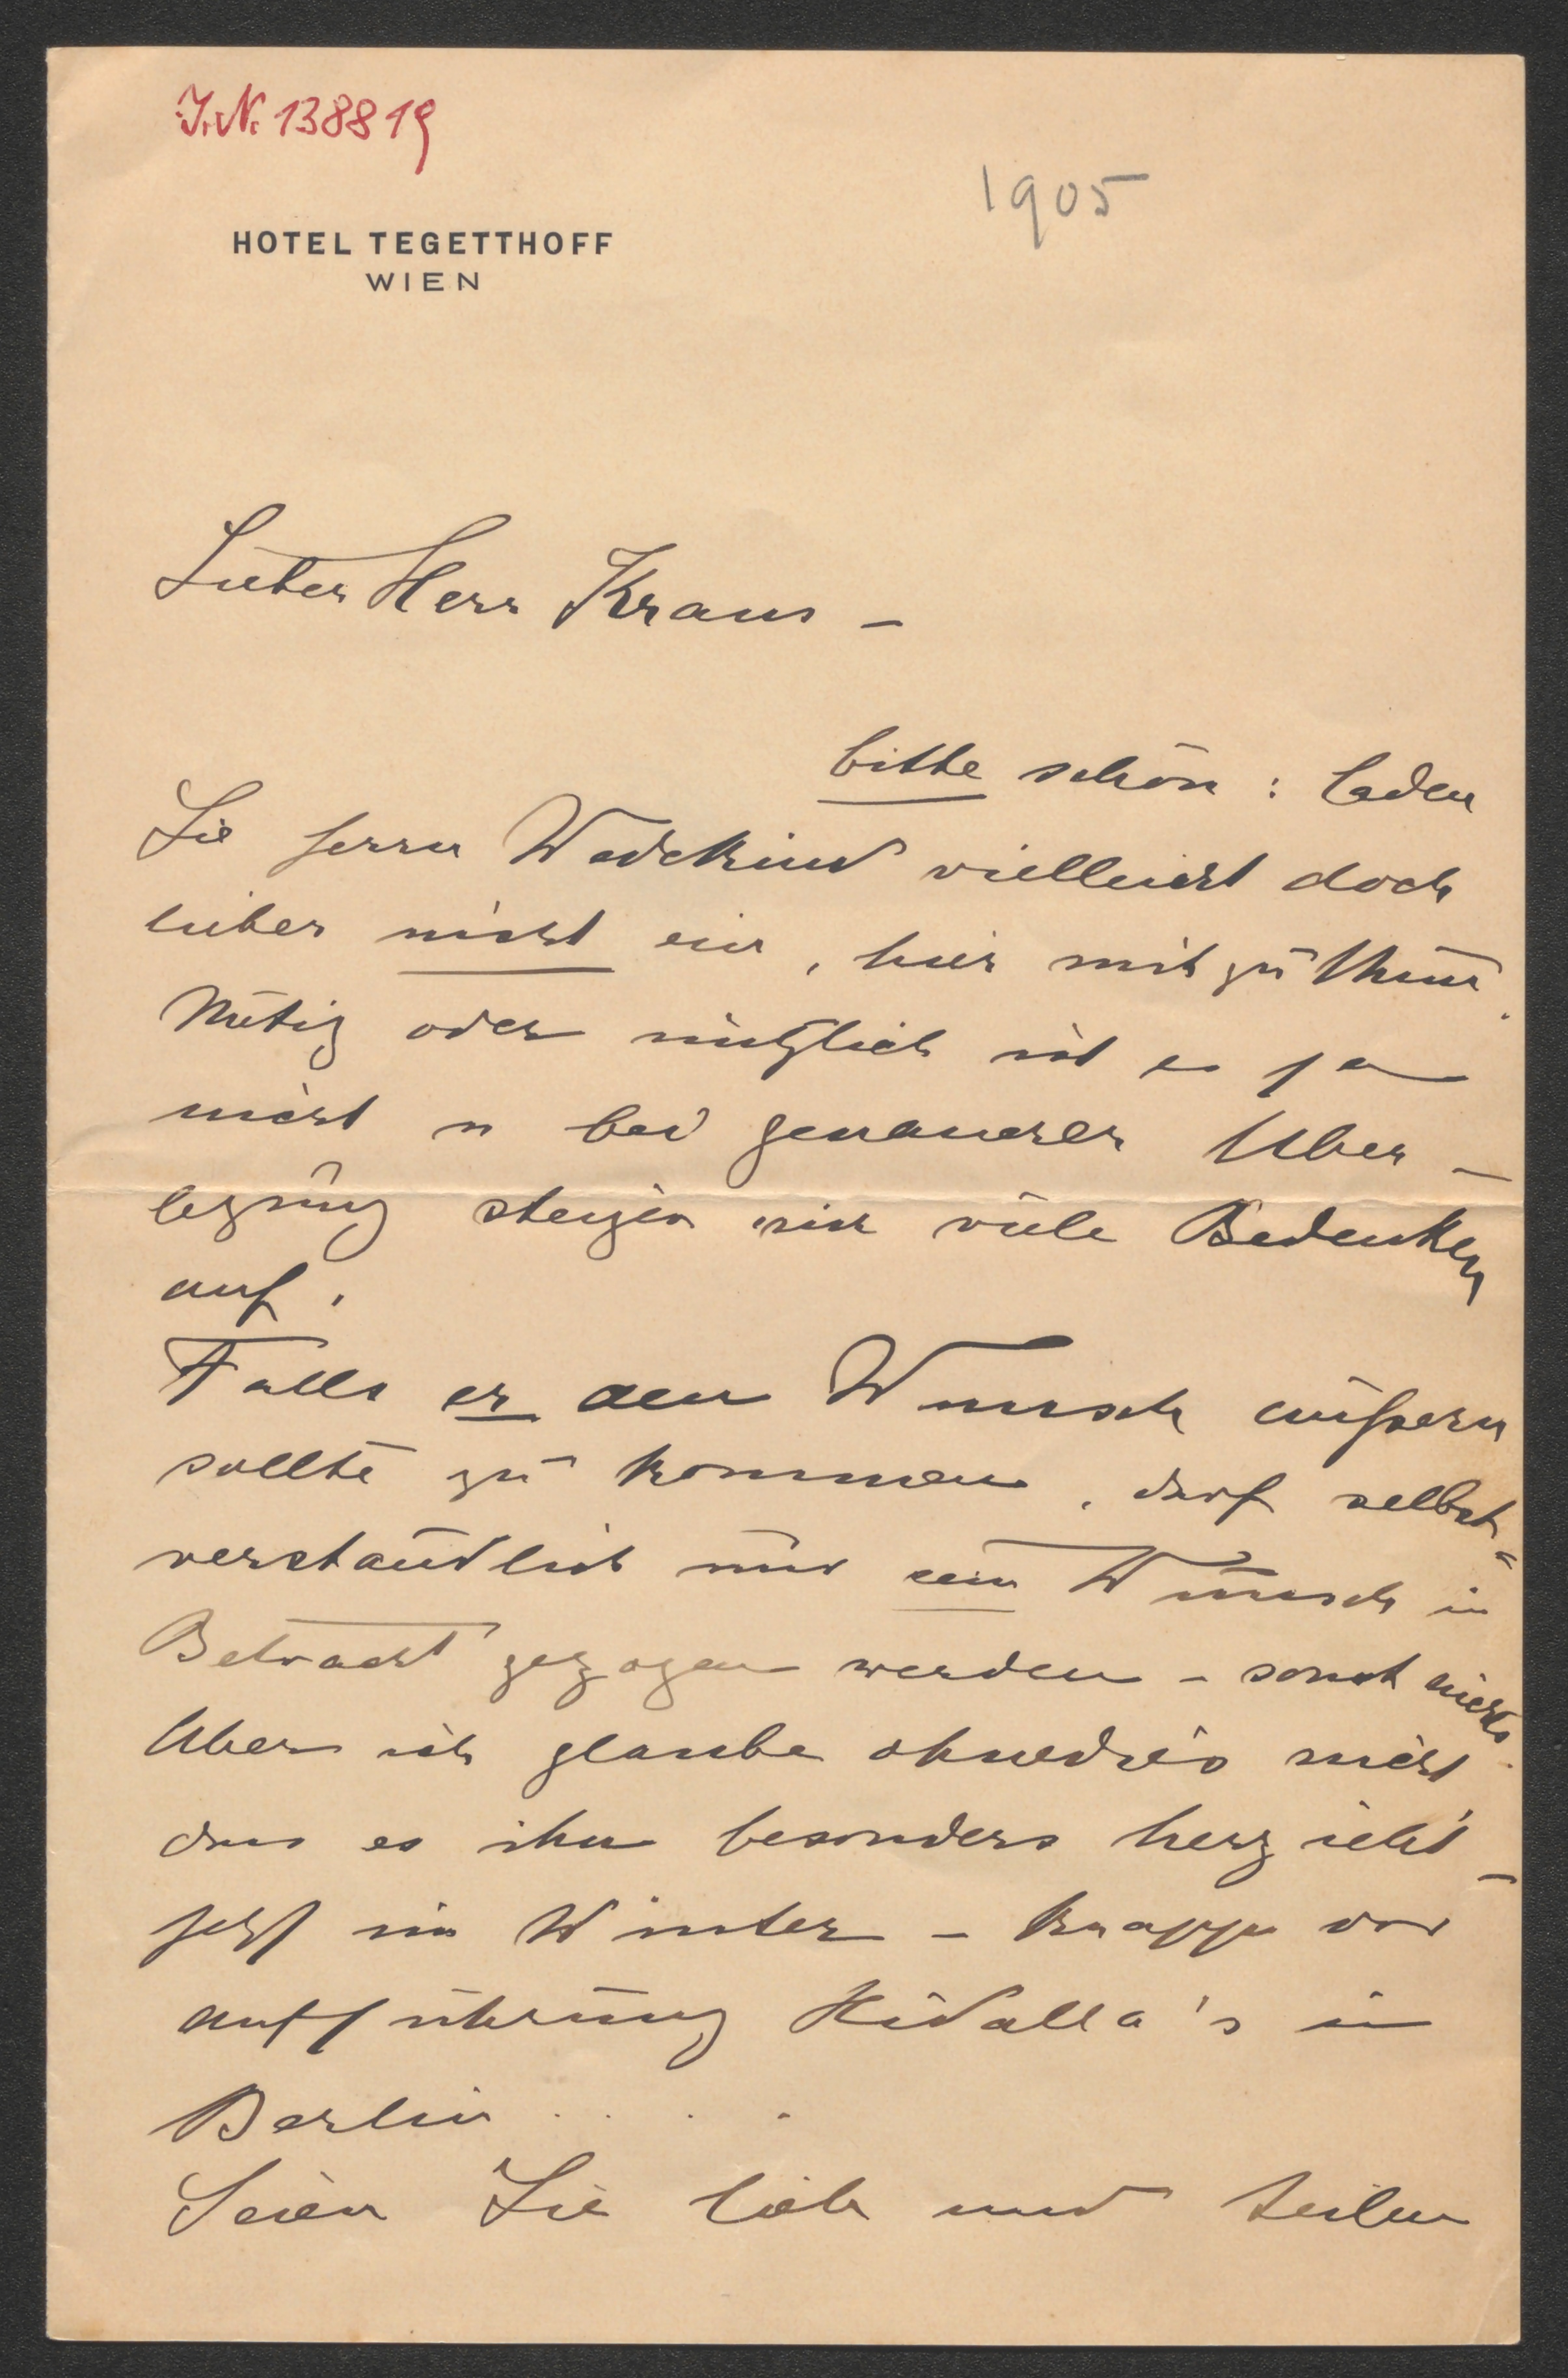 I.N. 138819
1905
HOTEL TEGETTHOFF
WIEN
Lieber Herr Kraus –
bitte schön : laden
Sie Herrn Wedekind vielleicht doch
lieber nicht ein, hier mitzuthun.
Nötig oder nützlich ist es ja
nicht u bei genauerer Über-
legung steigen mir viele Bedenken
auf.
Falls er den Wunsch äußern
sollte zu kommen, darf selbst-
verständlich nur sein Wunsch in
Betracht gezogen werden – sonst nichts.
Aber ich glaube ohnedies nicht
dass es ihn besonders herzieht –
jetzt im Winter – knapp vor
Aufführung Hidalla's in
Berlin . . . .
Seien Sie lieb und teilen